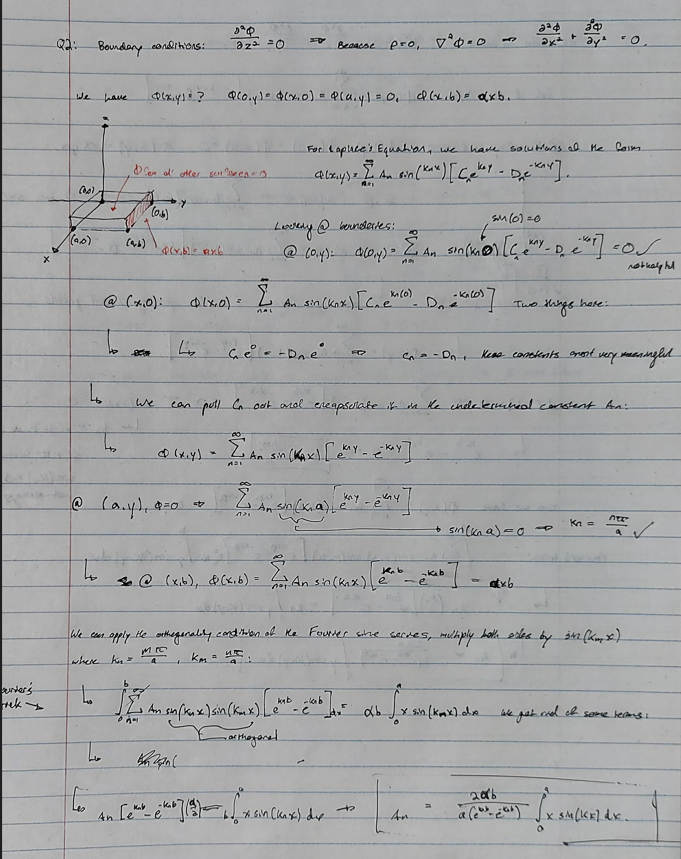 Q2: Boundary conditions: ∂²Φ/∂z² = 0 ⇒ Because ρ=0, ∇²Φ=0 ⇒ ∂²Φ/∂x² + ∂²Φ/∂y² = 0.
We have Φ(x,y)=? Φ(0,y)=Φ(x,0)=Φ(a,y)=0, Φ(x,b)=αxb.
For Laplace's Equation, we have solutions of the form
Φ(x,y)= Σ_{n=1}^{∞} An sin(knx) [Cn e^{kny} - Dn e^{-kny}].
z
Φ on all other surfaces=0
(0,0)
y
(0,b)
(a,0)
(a,b)
x
Φ(x,b)=αxb
Looking @ boundaries:
sin(0)=0
@ (0,y): Φ(0,y)= Σ_{n=1}^{∞} An sin(kn0) [Cn e^{kny} - Dn e^{-kny}] = 0 ✓
not helpful
@ (x,0): Φ(x,0)= Σ_{n=1}^{∞} An sin(knx) [Cn e^{kn(0)} - Dn e^{-kn(0)}] Two things here:
↳ ↳ Cn e⁰ = -Dn e⁰ ⇒ cn = -Dn, these constants aren't very meaningful
↳ We can pull Cn out and encapsulate it in the undetermined constant An:
↳ Φ(x,y) = Σ_{n=1}^{∞} An sin(knx) [e^{kny} - e^{-kny}]
@ (a,y), Φ=0 ⇒ Σ_{n=1}^{∞} An sin(kna) [e^{kny} - e^{-kny}]
→ sin(kna)=0 ⇒ kn = nπ/a ✓
↳ @ (x,b), Φ(x,b) = Σ_{n=1}^{∞} An sin(knx) [e^{knb} - e^{-knb}] = αxb
We can apply the orthogonality condition of the Fourier sine series, multiply both sides by sin(kmx)
where kn = mπ/a, km = nπ/a:
trick →
↳ ∫₀^b Σ_{n=1}^{∞} An sin(knx) sin(kmx) [e^{knb} - e^{-knb}] dx = αb ∫₀^a x sin(kmx) dx We get rid of some terms:
orthogonal
↳
↳ An [e^{knb} - e^{-knb}] (a/2) = b ∫₀^a x sin(knx) dx → An = 2αb / a(e^{knb} - e^{-knb}) ∫₀^a x sin(kx) dx.